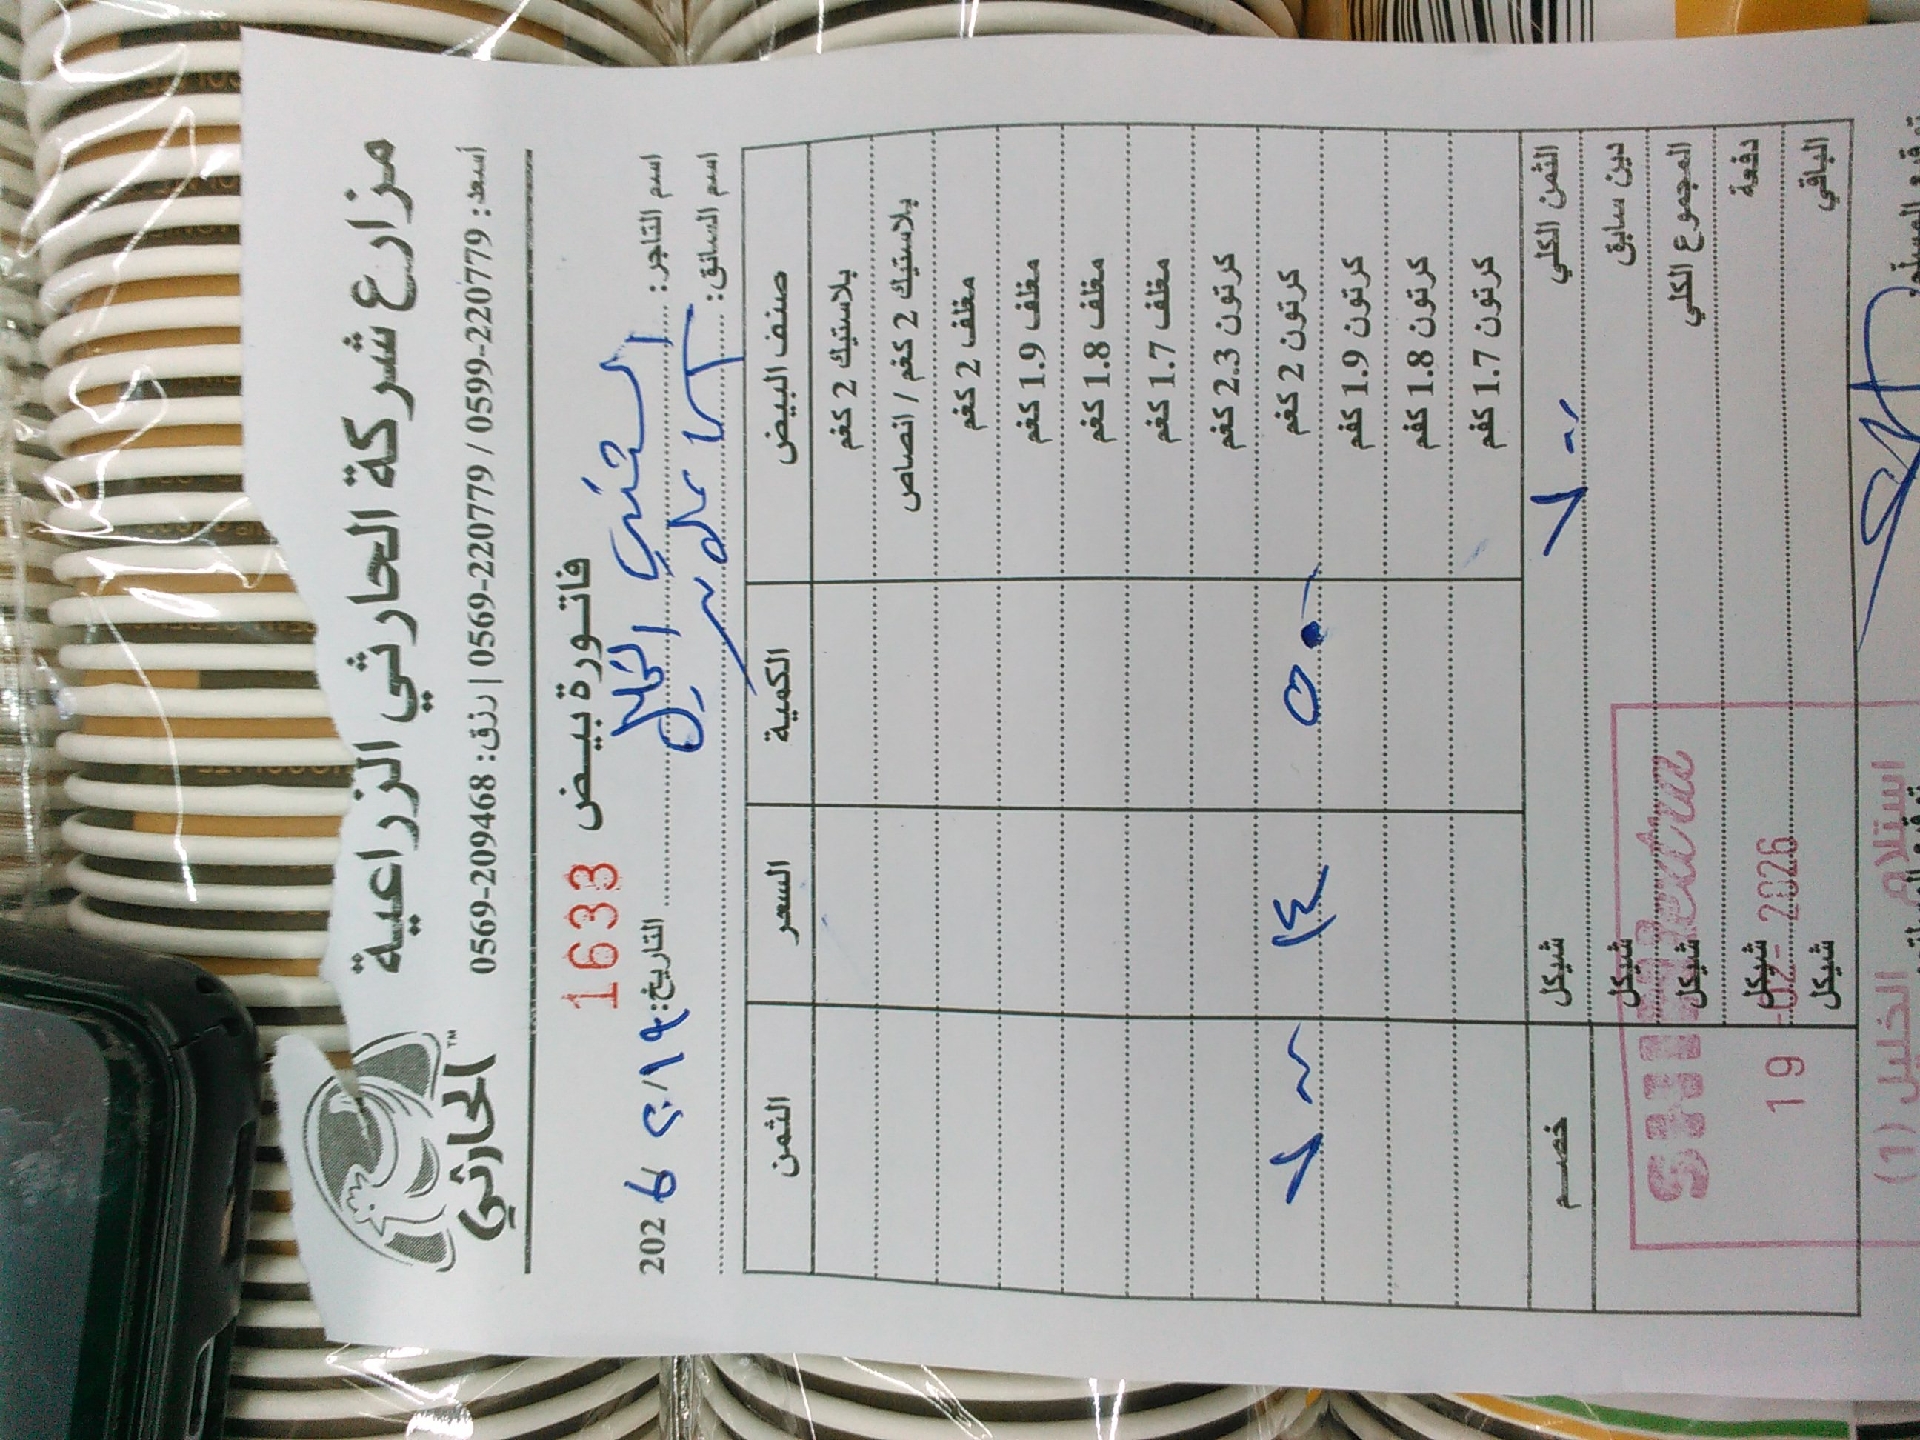 مزارع شركة الحارثي الزراعية
الحارثي
TM
أسعد: 0599-220779 / 0569-220779 | رزق: 0569-209468
فاتورة بيض
1633
اسم التاجر: الشني الخليل
التاريخ: ١٩/٢/ 202٦
اسم السائق:
صنف البيض الكمية السعر الثمن
بلاستيك 2 كغم
بلاستيك 2 كغم / انصاص
مغلف 2 كغم
مغلف 1.9 كغم
مغلف 1.8 كغم
مغلف 1.7 كغم
كرتون 2.3 كغم
كرتون 2 كغم ٥٠ ١٤ ٧٠٠
كرتون 1.9 كغم
كرتون 1.8 كغم
كرتون 1.7 كغم
الثمن الكلي ٧٠٠ شيكل خصم
دين سابق شيكل
المجموع الكلي شيكل
دفعة شيكل
الباقي شيكل
19 -02- 2026
استلام الخليل (1)